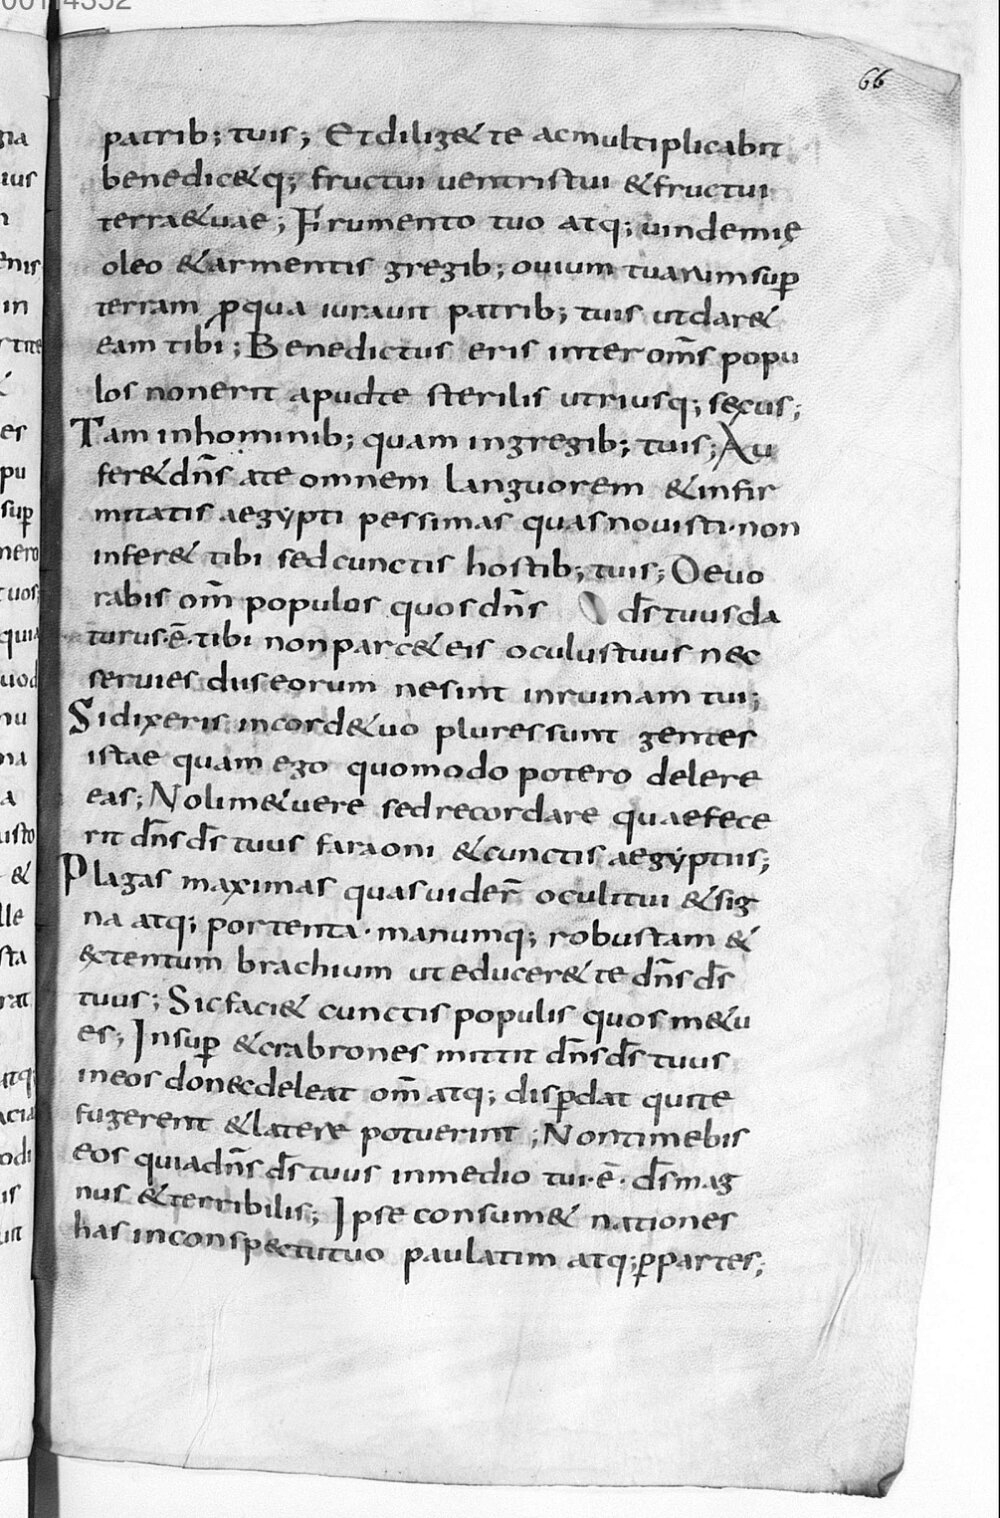 66
patrib; tuis; Et dilig& te ac multiplicabit
benedic&q; fructui uentris tui & fructui
terrae &uae; Frumento tuo atq; uindemię
oleo & armentis gregib; ouium tuarum sup̄
terram p̱ qua iurauit patrib; tuis ut dar&
eam tibi; Benedictus eris inter om̄s popu
los non erit apud te sterilis utriusq; sexus;
Tam in hominib; quam in gregib; tuis; Au
fer& dn̄s a te omnem languorem & infir
mitatis aegypti pessimas quas nouisti · non
infer& tibi sed cunctis hostib; tuis; Deuo
rabis om̄ populos quos dn̄s d̄s tuus da
turus · ē · tibi non parc& eis oculus tuus nec
seruies diis eorum ne sint in ruinam tui;
Si dixeris in corde &uo plures sunt gentes
istae quam ego quomodo potero delere
eas; Noli m&uere sed recordare quae fece
rit dn̄s d̄s tuus faraoni & cunctis aegyptiis;
Plagas maximas quas uider̄ oculi tui & sig
na atq; portenta · manumq; robustam &
&xtentum brachium ut educer& te dn̄s d̄s
tuus; Sic faci& cunctis populis quos m&u
es; Insup̄ & crabrones mittit dn̄s d̄s tuus
in eos donec deleat om̄ atq; disp̱dat qui te
fugerent & latere potuerint; Non timebis
eos quia dn̄s d̄s tuus in medio tui · ē · d̄s mag
nus & terribilis; Ipse consum& nationes
has in consp&ctu tuo paulatim atq; p̱ partes;